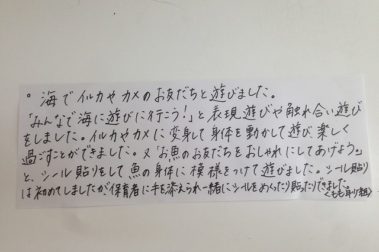 。海でイルカやカメのお友だちと遊びました。
「みんなで海に遊びに行こう！」と表現遊びや触れ合い遊び
をしました。イルカやカメに変身して身体を動かして遊び、楽しく
過ごすことができました。又「お魚のお友だちをおしゃれにしてあげよう。」
と、シール貼りをして魚の身体に模様をつけて遊びました。シール貼り
は初めてしましたが保育者に手を添えられ一緒にシールをめくったり貼ったりできました。
＜もも組＞